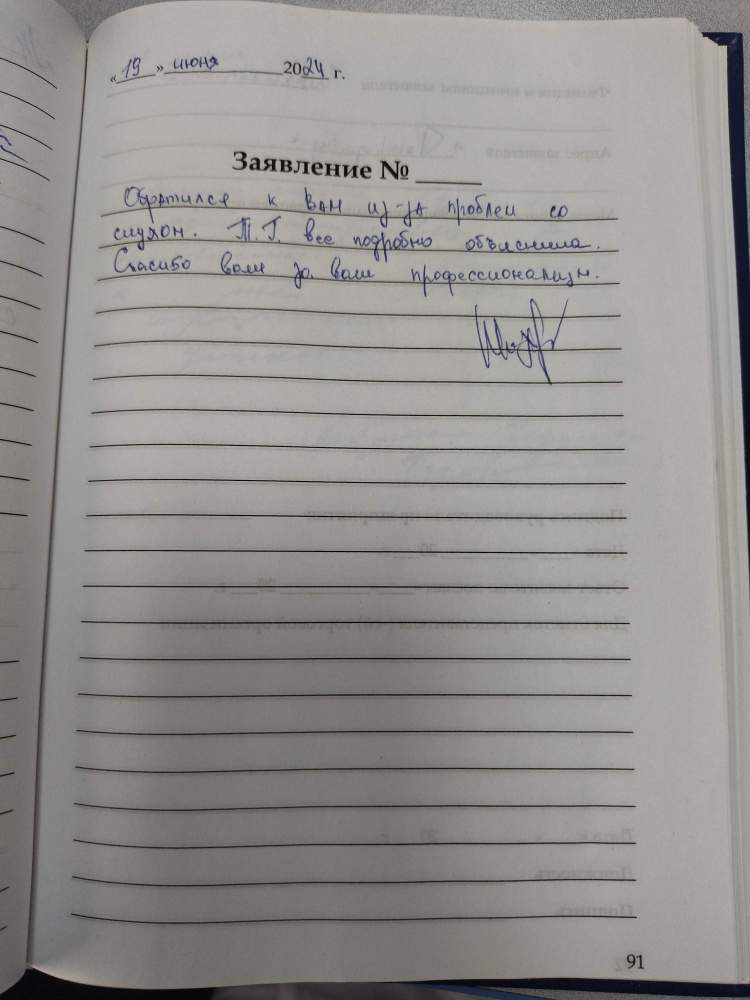 «19» июня 2024 г.
Заявление № ____
Обратился к вам из-за проблем со
слухом. Т.Г. все подробно объяснила.
Спасибо вам за ваш профессионализм.
91